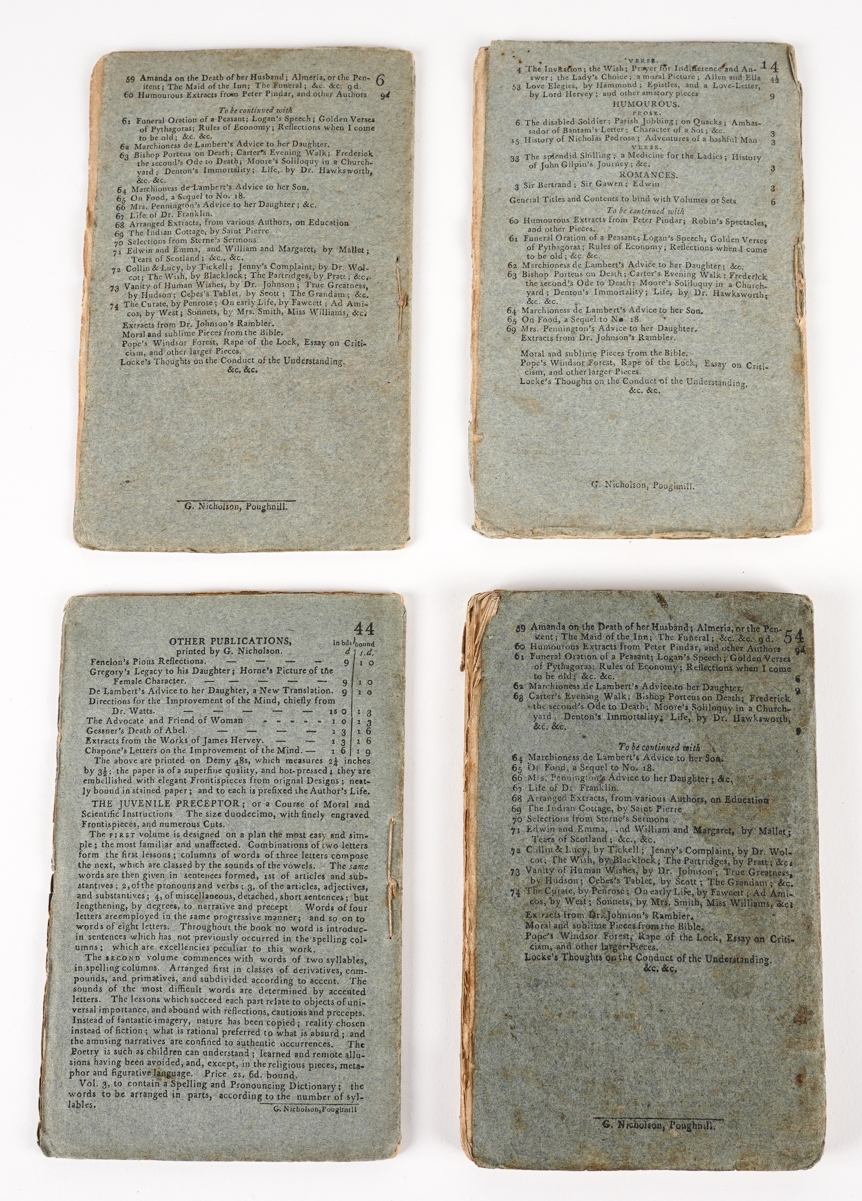 59 Amanda on the Death of her Husband; Almeria, or the Pen- 6
itent; The Maid of the Inn; The Funeral; &c. &c. 9d.
60 Humourous Extracts from Peter Pindar, and other Authors 9d
To be continued with
61 Funeral Oration of a Peasant; Logan's Speech; Golden Verses
of Pythagoras; Rules of Economy; Reflections when I come
to be old; &c. &c.
62 Marchioness de Lambert's Advice to her Daughter.
63 Bishop Porteus on Death; Carter's Evening Walk; Frederick
the second's Ode to Death; Moore's Soliloquy in a Church-
yard; Denton's Immortality; Life, by Dr. Hawksworth,
&c. &c.
64 Marchioness de Lambert's Advice to her Son.
65 On Food, a Sequel to No. 18.
66 Mrs. Pennington's Advice to her Daughter; &c.
67 Life of Dr. Franklin.
68 Arranged Extracts, from various Authors, on Education
69 The Indian Cottage, by Saint Pierre
70 Selections from Sterne's Sermons
71 Edwin and Emma, and William and Margaret, by Mallet;
Tears of Scotland; &c., &c.
72 Collin & Lucy, by Tickell; Jenny's Complaint, by Dr. Wol-
cot; The Wish, by Blacklock; The Partridges, by Pratt; &c.
73 Vanity of Human Wishes, by Dr. Johnson; True Greatness,
by Hudson; Cebes's Tablet, by Scott; The Grandam; &c.
74 The Curate, by Penrose; On early Life, by Fawcett; Ad Ami-
cos, by West; Sonnets, by Mrs. Smith, Miss Williams, &c;
Extracts from Dr. Johnson's Rambler.
Moral and sublime Pieces from the Bible.
Pope's Windsor Forest, Rape of the Lock, Essay on Criti-
cism, and other larger Pieces.
Locke's Thoughts on the Conduct of the Understanding.
&c. &c.
G. Nicholson, Poughnill.
VERSE. 14
4 The Invitation; the Wish; Prayer for Indifference and An-
swer; the Lady's Choice; a moral Picture; Allen and Ella 4½
53 Love Elegies, by Hammond; Epistles, and a Love-Letter,
by Lord Hervey; and other amatory pieces 9
HUMOUROUS.
PROSE.
6 The disabled Soldier; Parish Jobbing; on Quacks; Ambas-
sador of Bantam's Letter; Character of a Sot; &c. 3
25 History of Nicholas Pedrosa; Adventures of a bashful Man 3
VERSE.
33 The splendid Shilling; a Medicine for the Ladies; History
of John Gilpin's Journey; &c. 3
ROMANCES.
3 Sir Bertrand; Sir Gawen; Edwin 3
General Titles and Contents to bind with Volumes or Sets 6
To be continued with
60 Humourous Extracts from Peter Pindar; Robin's Spectacles,
and other Pieces.
61 Funeral Oration of a Peasant; Logan's Speech; Golden Verses
of Pythagoras; Rules of Economy; Reflections when I come
to be old; &c. &c.
62 Marchioness de Lambert's Advice to her Daughter; &c.
63 Bishop Porteus on Death; Carter's Evening Walk; Frederick
the second's Ode to Death; Moore's Soliloquy in a Church-
yard; Denton's Immortality; Life, by Dr. Hawksworth;
&c. &c.
64 Marchioness de Lambert's Advice to her Son.
64 On Food, a Sequel to No. 18.
69 Mrs. Pennington's Advice to her Daughter.
Extracts from Dr. Johnson's Rambler.
Moral and sublime Pieces from the Bible.
Pope's Windsor Forest, Rape of the Lock, Essay on Criti-
cism, and other larger Pieces.
Locke's Thoughts on the Conduct of the Understanding.
&c. &c.
G. Nicholson, Poughnill.
44
OTHER PUBLICATIONS,
printed by G. Nicholson.
In bds bound
d s. d.
Fenelon's Pious Reflections. — — — — 9 1 0
Gregory's Legacy to his Daughter; Horne's Picture of the
Female Character. — — — — 9 1 0
De Lambert's Advice to her Daughter, a New Translation. 9 1 0
Directions for the Improvement of the Mind, chiefly from
Dr. Watts. — — — — 10 0 1 3
The Advocate and Friend of Woman - - - - - 1 0 1 3
Gessner's Death of Abel. — — — — 1 3 1 6
Extracts from the Works of James Hervey. — — 1 3 1 6
Chapone's Letters on the Improvement of the Mind. — 1 6 1 9
The above are printed on Demy 48s, which measures 2¼ inches
by 3½: the paper is of a superfine quality, and hot-pressed; they are
embellished with elegant Frontispieces from orignal Designs; neat-
ly bound in stained paper; and to each is prefixed the Author's Life.
THE JUVENILE PRECEPTOR; or a Course of Moral and
Scientific Instructions The size duodecimo, with finely engraved
Frontispieces, and numerous Cuts.
The FIRST volume is designed on a plan the most easy and sim-
ple; the most familiar and unaffected. Combinations of two letters
form the first lessons; columns of words of three letters compose
the next, which are classed by the sounds of the vowels. The same
words are then given in sentences formed, 1st of articles and sub-
stantives; 2, of the pronouns and verbs; 3, of the articles, adjectives,
and substantives; 4, of miscellaneous, detached, short sentences; but
lengthening, by degrees, to narrative and precept Words of four
letters are employed in the same progressive manner; and so on to
words of eight letters. Throughout the book no word is introduc-
in sentences which has not previously occurred in the spelling col-
umns; which are excellencies peculiar to this work.
The SECOND volume commences with words of two syllables,
in spelling columns. Arranged first in classes of derivatives, com-
pounds, and primatives, and subdivided according to accent. The
sounds of the most difficult words are determined by accented
letters. The lessons which succeed each part relate to objects of uni-
versal importance, and abound with reflections, cautions and precepts.
Instead of fantastic imagery, nature has been copied; reality chosen
instead of fiction; what is rational preferred to what is absurd; and
the amusing narratives are confined to authentic occurrences. The
Poetry is such as children can understand; learned and remote allu-
sions having been avoided, and, except, in the religious pieces, meta-
phor and figurative language. Price 2s. 6d. bound.
Vol. 3, to contain a Spelling and Pronouncing Dictionary; the
words to be arranged in parts, according to the number of syl-
lables.
G. Nicholson, Poughnill
59 Amanda on the Death of her Husband; Almeria, or the Pen- 54
itent; The Maid of the Inn; The Funeral; &c. &c. 9 d.
60 Humourous Extracts from Peter Pindar, and other Authors 9d
61 Funeral Oration of a Peasant; Logan's Speech; Golden Verses
of Pythagoras; Rules of Economy; Reflections when I come
to be old; &c. &c.
62 Marchioness de Lambert's Advice to her Daughter. 9
63 Carter's Evening Walk; Bishop Porteus on Death; Frederick
the second's Ode to Death; Moore's Soliloquy in a Church-
yard, Denton's Immortality; Life, by Dr. Hawksworth,
&c. &c. 9
To be continued with
64 Marchioness de Lambert's Advice to her Son.
65 On Food, a Sequel to No. 18.
66 Mrs. Pennington's Advice to her Daughter; &c.
67 Life of Dr. Franklin.
68 Arranged Extracts, from various Authors, on Education
69 The Indian Cottage, by Saint Pierre
70 Selections from Sterne's Sermons
71 Edwin and Emma, and William and Margaret, by Mallet;
Tears of Scotland; &c., &c.
72 Collin & Lucy, by Tickell; Jenny's Complaint, by Dr. Wol-
cot; The Wish, by Blacklock; The Partridges, by Pratt; &c;
73 Vanity of Human Wishes, by Dr. Johnson; True Greatness,
by Hudson; Cebes's Tablet, by Scott; The Grandam; &c.
74 The Curate, by Penrose; On early Life, by Fawcett; Ad Ami-
cos, by West; Sonnets, by Mrs. Smith, Miss Williams, &c;
Extracts from Dr. Johnson's Rambler.
Moral and sublime Pieces from the Bible.
Pope's Windsor Forest, Rape of the Lock, Essay on Criti-
cism, and other larger Pieces.
Locke's Thoughts on the Conduct of the Understanding.
&c. &c.
G. Nicholson, Poughnill.